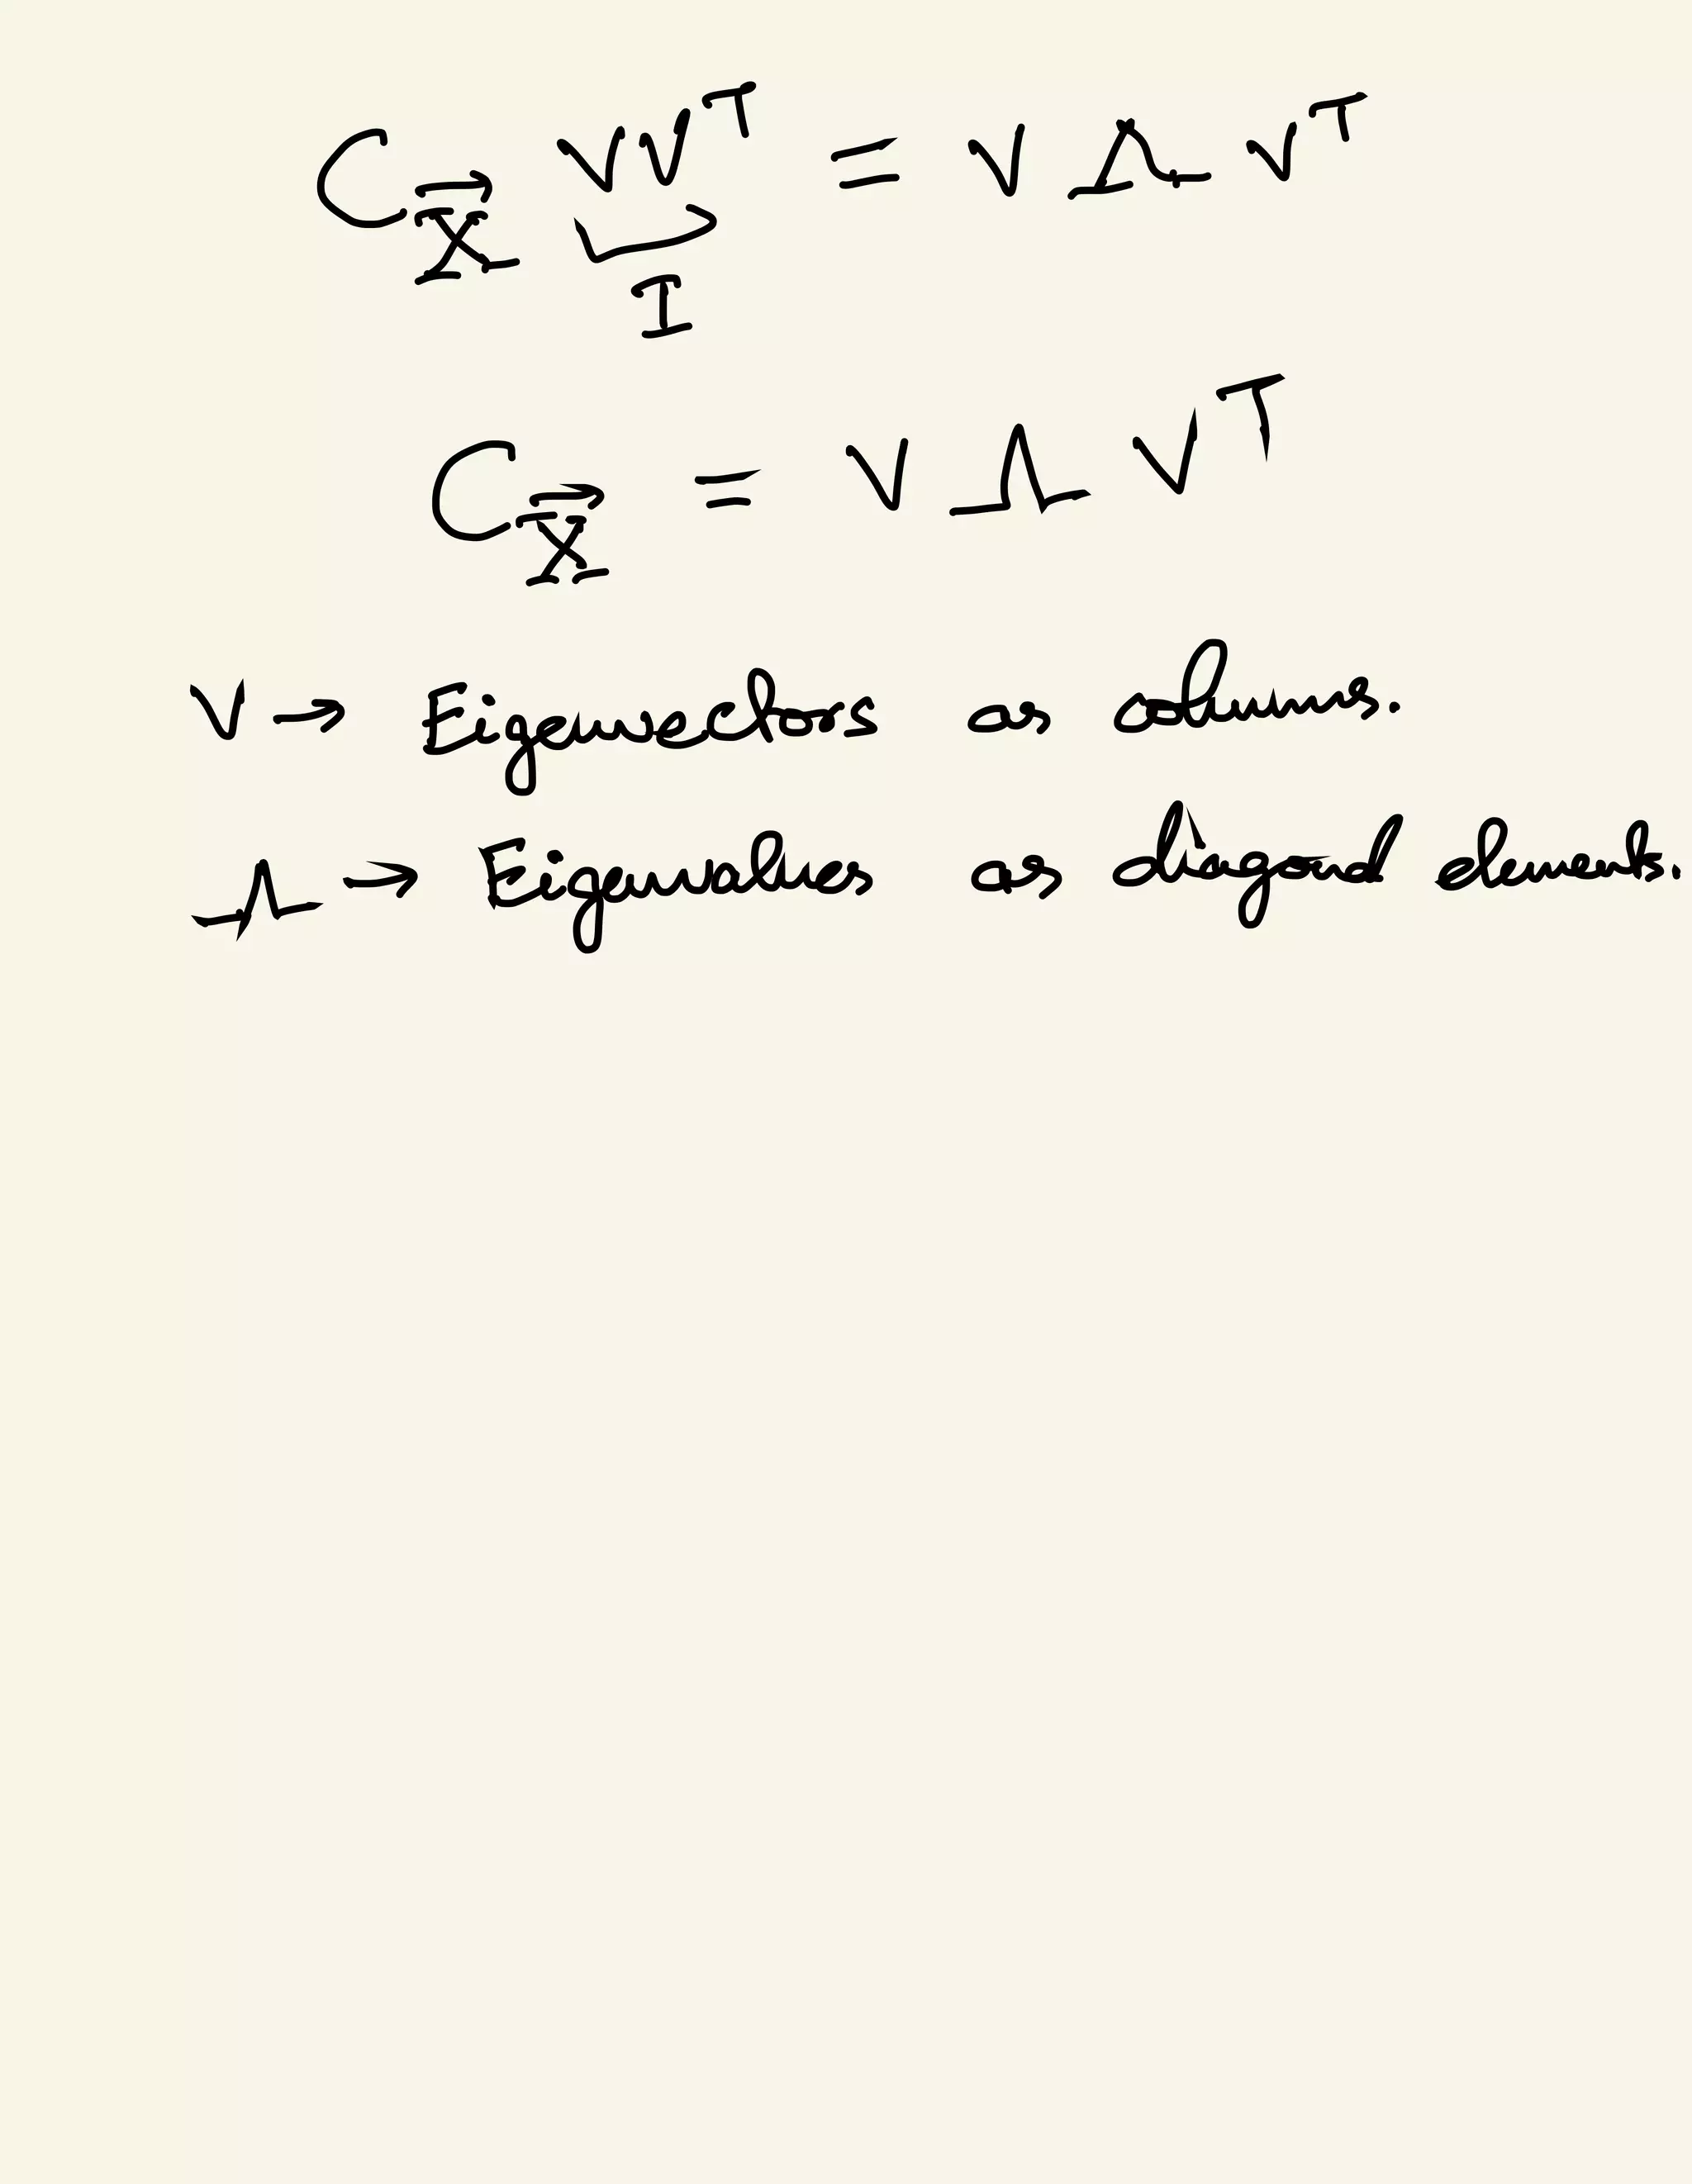 C_{\vec{X}} V V^T = V Λ V^T
I
C_{\vec{X}} = V Λ V^T
V → Eigenvectors as columns.
Λ → Eigenvalues as diagonal elements.